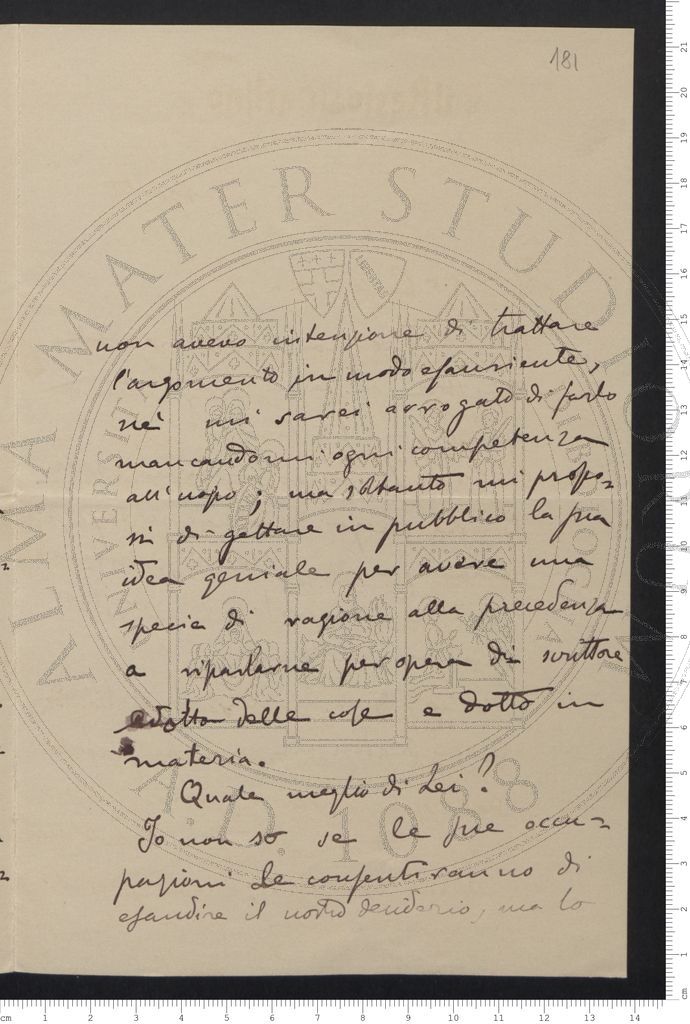 181
non avevo intenzione di trattare
l'argomento in modo esauriente,
nè mi sarei arrogato di farlo
mancandomi ogni competenza
all'uopo; ma soltanto mi propo-
si di gettare in pubblico la sua
idea geniale per avere una
specie di ragione alla precedenza
a riparlarne per opera di scrittore
edotto delle cose e dotto in
materia.
Quale meglio di Lei?
Io non so se le sue occu-
pazioni Le consentiranno di
esaudire il nostro desiderio, ma lo
ALMA MATER STUDIORUM
A.D. 1088
LIBERTAS